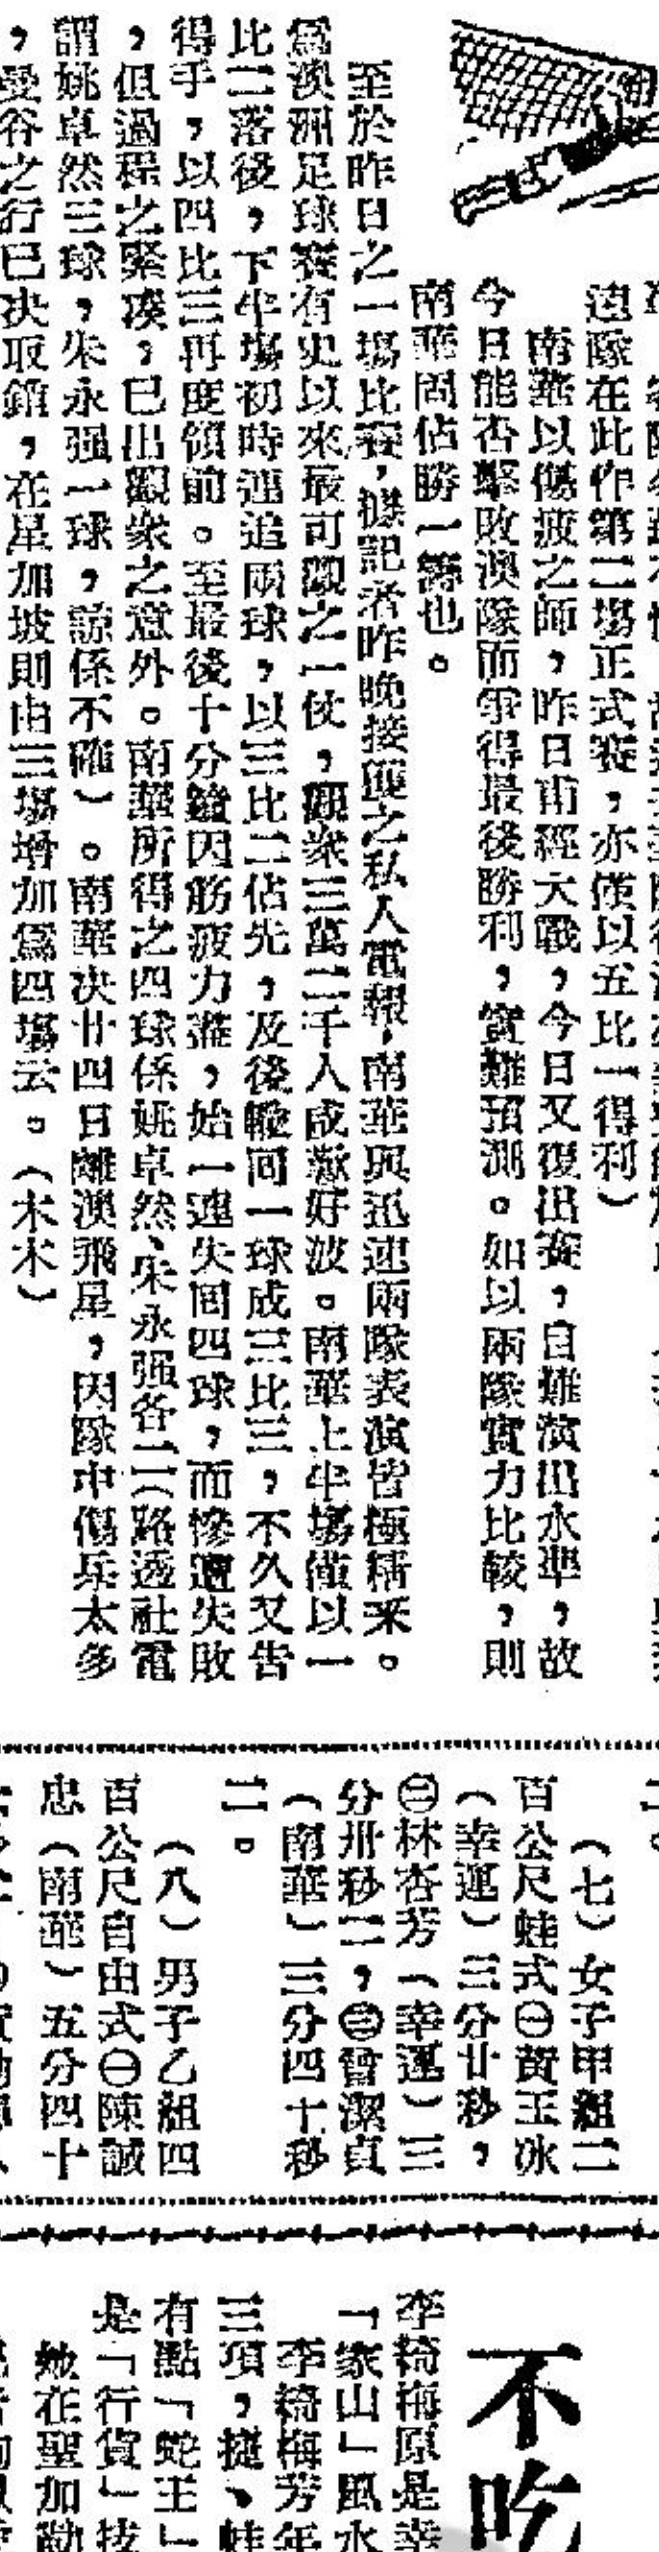 速隊在此作第二場正式賽，亦僅以五比一得利）
南華以傷疲之師，昨日甫經大戰，今日又復出賽，自難演出水準，故
今日能否擊敗澳隊而爭得最後勝利，實難預測。如以兩隊實力比較，則
南華固佔勝一籌也。
至於昨日之一場比賽，據記者昨晚接獲之私人電報，南華與迅速兩隊表演皆極精采。
為澳洲足球賽有史以來最可觀之一仗，觀衆三萬二千人咸歎好波。南華上半場僅以一
比二落後，下半塲初時連追兩球，以三比二佔先，及後輸回一球成三比三，不久又告
得手，以四比三再度領前。至最後十分鐘因筋疲力盡，始一連失回四球，而慘遭失敗
，但過程之緊凑，已出觀衆之意外。南華所得之四球係姚卓然、朱永强各二（路透社電
謂姚卓然三球，朱永强一球，諒係不確）。南華决廿四日離澳飛星，因隊中傷兵太多
，曼谷之行已决取銷，在星加坡則由三場增加爲四場云。（木木）
二。
（七）女子甲組二
百公尺蛙式㊀黃玉冰
（幸運）三分廿秒，
㊁林杏芳（幸運）三
分卅秒二，㊂曾潔貞
（南華）三分四十秒
二。
（八）男子乙組四
百公尺自由式㊀陳誠
忠（南華）五分四十
不吃
李綺梅原是幸
「家山」風水
李綺梅芳年
三項，捷、蛙
有點「蛇王」
是「行貨」技
她在聖加勒